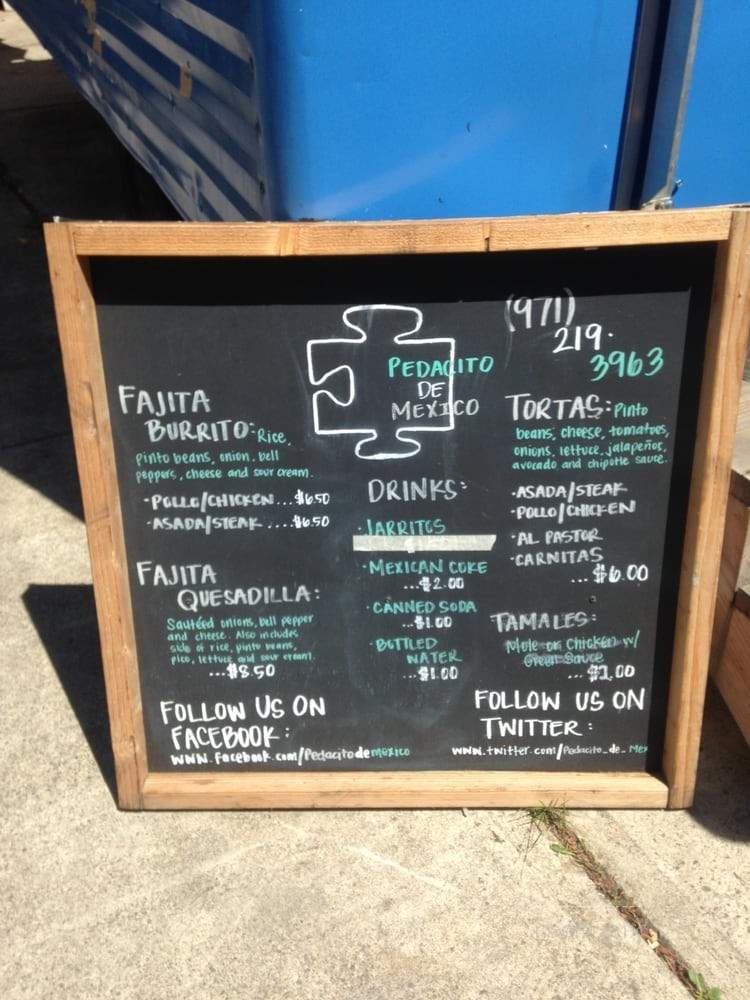 (971)
219.
3963
PEDACITO
DE
MEXICO
FAJITA
BURRITO: Rice,
pinto beans, onion, bell
peppers, cheese and sour cream.
·POLLO/CHICKEN...$6.50
·ASADA/STEAK....$6.50
FAJITA
QUESADILLA:
Sautéed onions, bell pepper
and cheese. Also includes
side of rice, pinto beans,
pico, lettuce and sour cream.
...$8.50
FOLLOW US ON
FACEBOOK:
www.facebook.com/Pedacitodemexico
DRINKS:
·JARRITOS
·MEXICAN COKE
...$2.00
·CANNED SODA
...$1.00
·BOTTLED
WATER
...$1.00
TORTAS: Pinto
beans, cheese, tomatoes,
onions, lettuce, jalapeños,
avocado and chipotle sauce.
·ASADA/STEAK
·POLLO/CHICKEN
·AL PASTOR
·CARNITAS
...$6.00
TAMALES:
Mole or Chicken w/
Green Sauce
...$2.00
FOLLOW US ON
TWITTER:
www.twitter.com/Pedacito_de_Mex